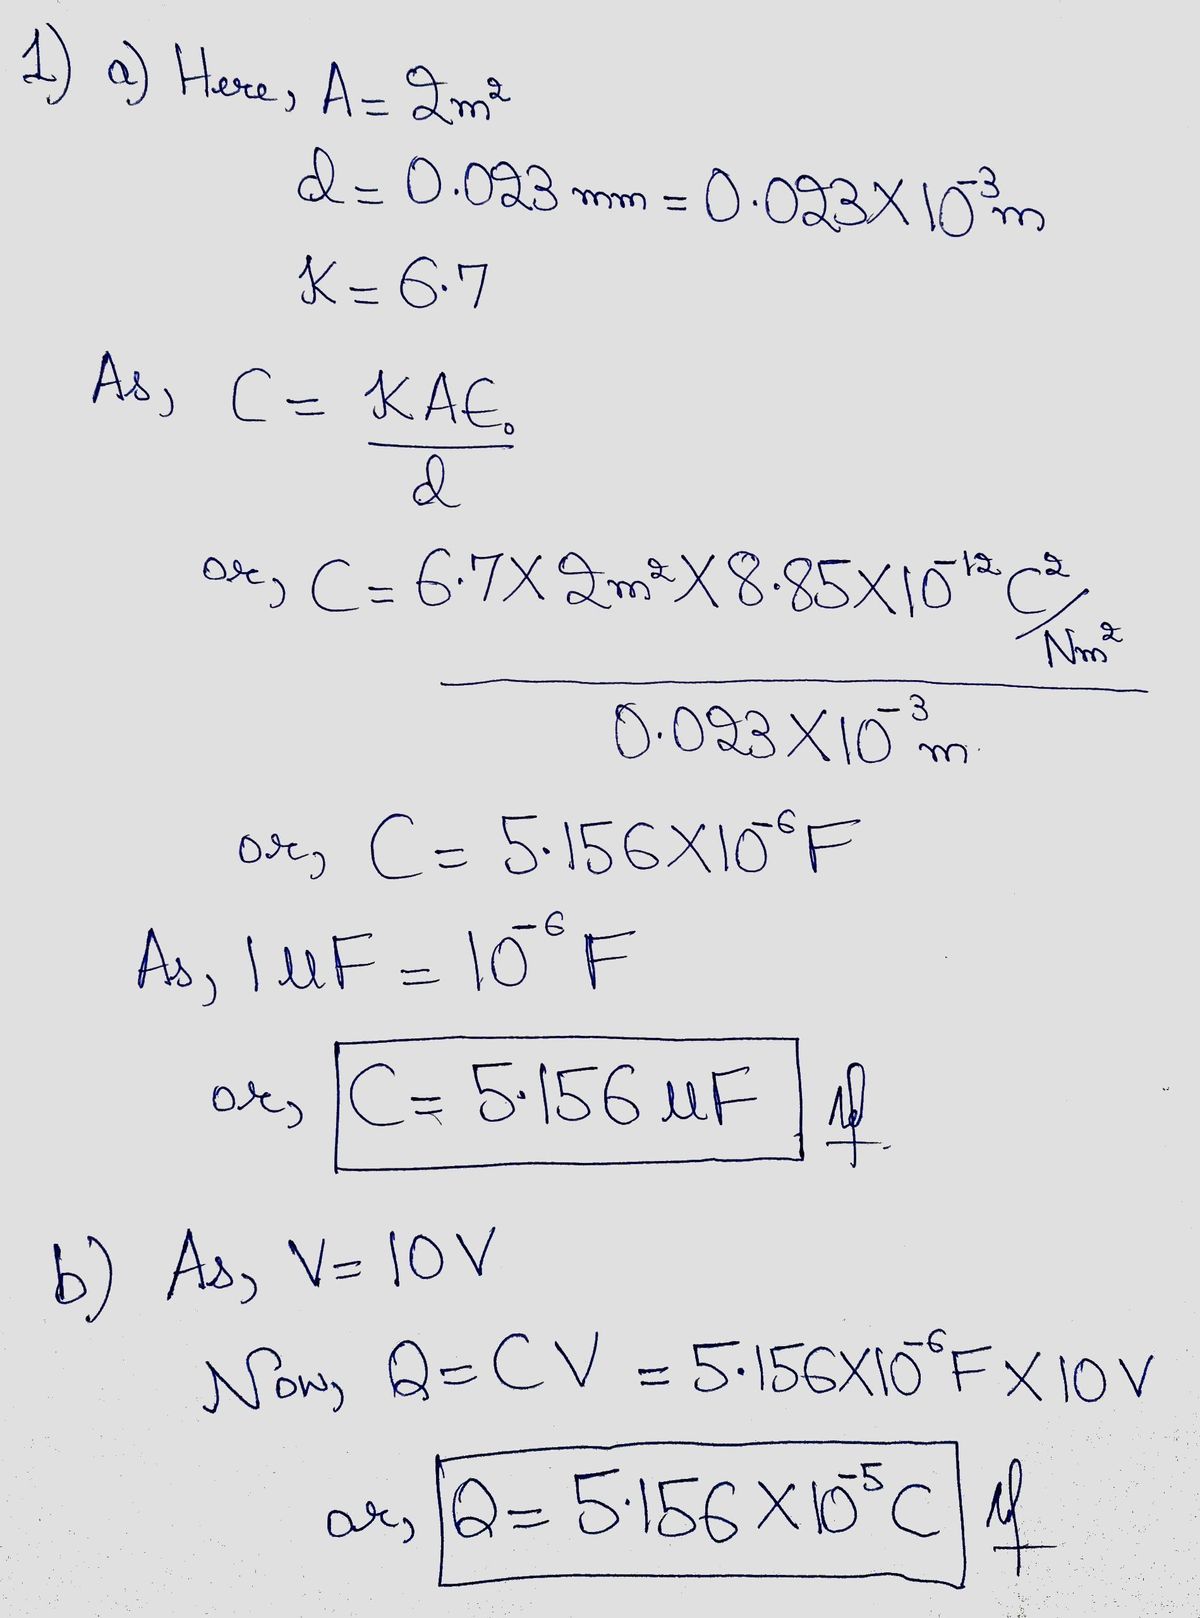 1) a) Here, A = 2m²
d = 0.023 mm = 0.023 X 10⁻³m
K = 6.7
As, C = KAϵ₀
d
or, C = 6.7 X 2m² X 8.85 X 10⁻¹² C²/Nm²
0.023 X 10⁻³m
or, C = 5.156 X 10⁻⁶ F
As, 1 μF = 10⁻⁶ F
or, C = 5.156 μF
b) As, V = 10 V
Now, Q = CV = 5.156 X 10⁻⁶ F X 10 V
or, Q = 5.156 X 10⁻⁵ C